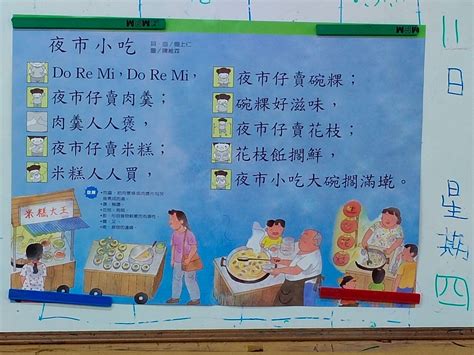 夜市小吃
Do Re Mi，Do Re Mi，
夜市仔賣肉羹；
肉羹人人褒，
夜市仔賣米糕；
米糕人人買，
夜市仔賣碗粿；
碗粿好滋味，
夜市仔賣花枝；
花枝飪擱鮮，
夜市小吃大碗擱滿墘。
米糕大王
11
日
星
期
四